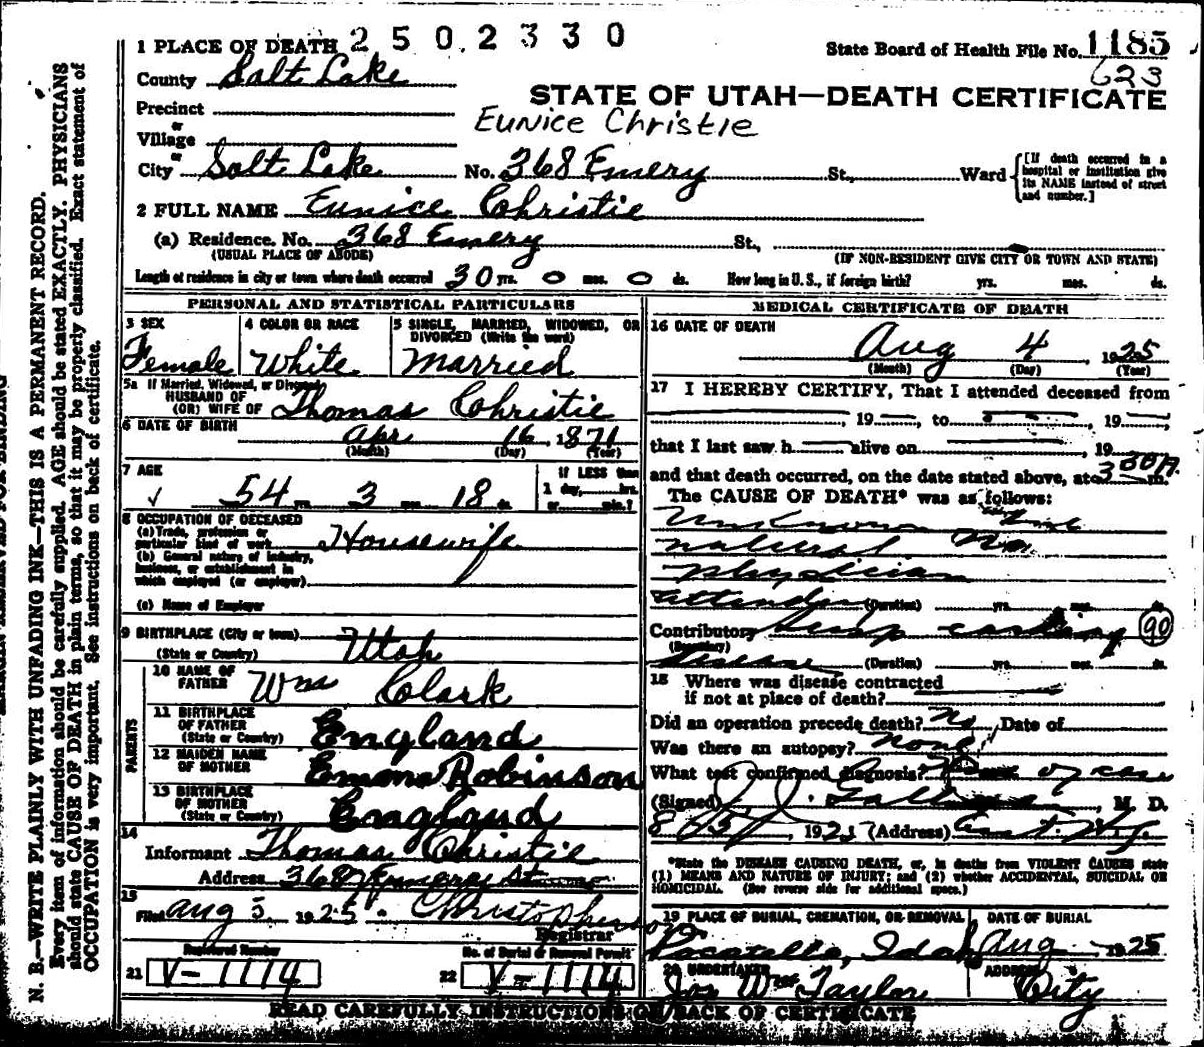 1 PLACE OF DEATH 2 5 0 2 3 3 0
State Board of Health File No. 1185
County Salt Lake
623
STATE OF UTAH—DEATH CERTIFICATE
Precinct
Eunice Christie
or
Village
or
City Salt Lake No. 368 Emery St., Ward
[If death occurred in a hospital or institution give its NAME instead of street and number.]
2 FULL NAME Eunice Christie
(a) Residence. No. 368 Emery St.,
(USUAL PLACE OF ABODE) (IF NON-RESIDENT GIVE CITY OR TOWN AND STATE)
Length of residence in city or town where death occurred 30 yrs. 0 mos. 0 ds. How long in U. S., if foreign birth? yrs. mos. ds.
PERSONAL AND STATISTICAL PARTICULARS
3 SEX Female
4 COLOR OR RACE White
5 SINGLE, MARRIED, WIDOWED, OR DIVORCED (Write the word) Married
5a If Married, Widowed, or Divorced
HUSBAND OF
(OR) WIFE OF Thomas Christie
6 DATE OF BIRTH Apr 16, 1871
(Month) (Day) (Year)
7 AGE 54 3 18 ds.
If LESS than 1 day, hrs. or min.?
8 OCCUPATION OF DECEASED
(a) Trade, profession or particular kind of work Housewife
(b) General nature of industry, business, or establishment in which employed (or employer)
(c) Name of Employer
9 BIRTHPLACE (City or town) Utah
(State or Country)
PARENTS
10 NAME OF FATHER Wm Clark
11 BIRTHPLACE OF FATHER (State or Country) England
12 MAIDEN NAME OF MOTHER Emma Robinson
13 BIRTHPLACE OF MOTHER (State or Country) England
14
Informant Thomas Christie
Address 368 Emery St
15
Filed Aug 5, 1925. Christopherson
Registrar
Registered Number
21 V-1114
No. of Burial or Removal Permit
22 V-1114
MEDICAL CERTIFICATE OF DEATH
16 DATE OF DEATH
Aug 4, 1925
(Month) (Day) (Year)
17 I HEREBY CERTIFY, That I attended deceased from
, 19 , to , 19 ,
that I last saw h alive on , 19
and that death occurred, on the date stated above, at 3 m.
The CAUSE OF DEATH* was as follows:
Unknown
natural. No
physician
attending (Duration) yrs. mos. ds.
Contributory 90
(Secondary)
disease (Duration) yrs. mos. ds.
18 Where was disease contracted
if not at place of death?
Did an operation precede death? No Date of
Was there an autopsy? none
What test confirmed diagnosis? of case
(Signed) M. D.
8/5/, 1925 (Address)
*State the DISEASE CAUSING DEATH, or, in deaths from VIOLENT CAUSES state
(1) MEANS AND NATURE OF INJURY; and (2) whether ACCIDENTAL, SUICIDAL OR
HOMICIDAL. (See reverse side for additional space.)
19 PLACE OF BURIAL, CREMATION, OR REMOVAL DATE OF BURIAL
Pocatello, Idaho Aug 1925
20 UNDERTAKER ADDRESS
Jos Wm Taylor City
READ CAREFULLY INSTRUCTIONS ON BACK OF CERTIFICATE
N. B.—WRITE PLAINLY WITH UNFADING INK—THIS IS A PERMANENT RECORD.
Every item of information should be carefully supplied. AGE should be stated EXACTLY. PHYSICIANS
should state CAUSE OF DEATH in plain terms, so that it may be properly classified. Exact statement of
OCCUPATION is very important. See instructions on back of certificate.